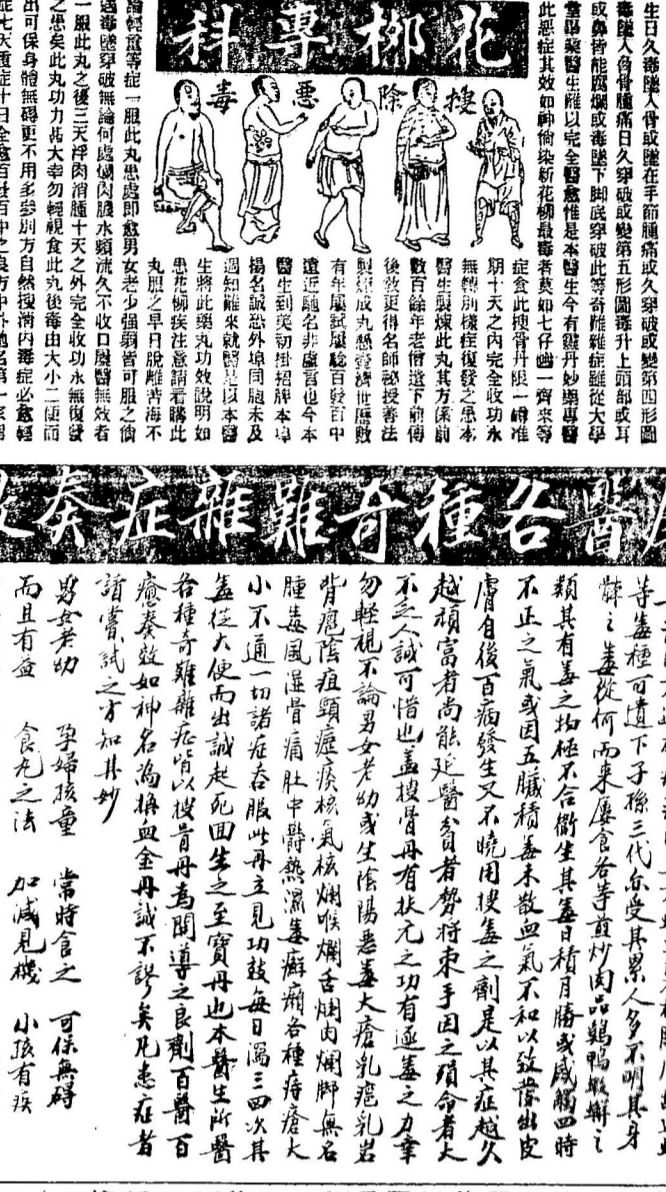 花柳專科
搜除惡毒
生日久毒墜人骨或墜在手節腫痛或久穿破或變第四形圖
毒墜人脊骨腫痛日久穿破或變第五形圖毒升上頭部或耳
或鼻皆能腐爛或毒墜下脚底穿破此等奇難雜症雖從大學
堂畢業醫生難以完全醫愈惟是本醫生今有靈丹妙藥專醫
此惡症其效如神倘染新花柳最毒者莫如七仔 一齊來等
症食此搜骨丹限一 准
期十天之內完全收功永
無轉別樣症復發之患本
醫生製煉此丸其方係前
數百餘年老僧遺下前傳
後教更得名師秘授善法
製煉成丸懸壺濟世歷數
有年屢試屢驗百發百中
遠近馳名非虛言也今本
醫生到美初掛招牌本埠
揚名誠恐外埠同胞未及
週知難來就醫是以本醫
生將此藥丸功效說明如
患花柳疾注意請看購此
丸服之早日脫離苦海不
論輕重等症一服此丸患處即愈男女老少强弱皆可服之倘
遇毒墜穿破無論何處爛肉膿水頻流久不收口屢醫無效者
一服此丸之後三天浮肉消腫十天之外完全收功永無復發
之患矣此丸功力甚大幸勿輕視食此丸後毒由大小二便而
出可保身體無碍更不用多參別方自然搜淸內毒症必愈輕
症七天重症十日全愈百試百中之良方中外馳名第一家專
醫各種奇難雜症奏
等毒種可遺下子孫三代亦受其累人多不明其身
體之毒從何而來屢食各等煎炒肉品鷄鴨蝦蠏之
類其有毒之物極不合衛生其毒日積月勝或感觸四時
不正之氣或因五臟積毒未散血氣不和以致發出皮
膚自後百病發生又不曉用搜毒之劑是以其症越久
越頑富者尚能延醫貧者勢將束手因之殞命者大
不乏人誠可惜也蓋搜骨丹有扶元之功有逐毒之力幸
勿輕視不論男女老幼或生陰陽惡毒大瘡乳癰乳岩
背癰陰疽頸癧痰核氣核爛喉爛舌爛肉爛脚無名
腫毒風濕骨痛肚中欝熱濕毒癬癩各種痔瘡大
小不通一切諸症吞服此丹立見功效每日瀉三四次其
毒從大便而出誠起死回生之至寶丹也本醫生所醫
各種奇難雜症皆以搜骨丹為開導之良劑百醫百
癒奏效如神名為換血金丹誠不謬矣凡患症者
請嘗試之方知其妙
男女老幼 孕婦孩童 常時食之 可保無碍
而且有益 食丸之法 加減見機 小孩有疾